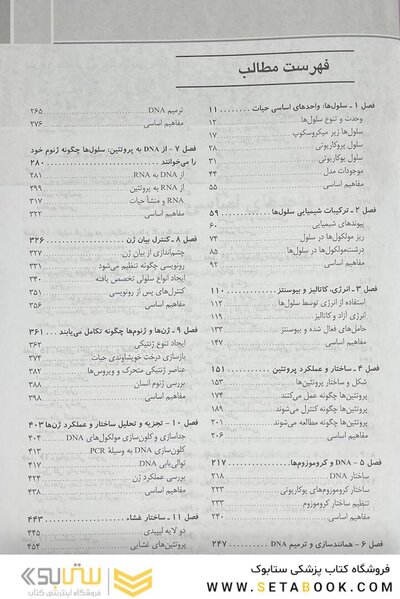 فهرست مطالب
فصل ۱ ـ سلول‌ها: واحدهای اساسی حیات ۱۱
وحدت و تنوع سلول‌ها ۱۲
سلول‌ها زیر میکروسکوپ ۱۷
سلول پروکاریوتی ۲۸
سلول یوکاریوتی ۳۱
موجودات مدل ۴۴
مفاهیم اساسی ۵۵
فصل ۲ ـ ترکیبات شیمیایی سلول‌ها ۵۹
پیوندهای شیمیایی ۶۰
ریز مولکول‌ها در سلول ۷۴
درشت‌مولکول‌ها در سلول ۸۵
مفاهیم اساسی ۹۲
فصل ۳ ـ انرژی، کاتالیز و بیوسنتز ۱۱۰
استفاده از انرژی توسط سلول‌ها ۱۱۱
انرژی آزاد و کاتالیز ۱۱۹
حامل‌های فعال شده و بیوسنتز ۱۳۳
مفاهیم اساسی ۱۴۷
فصل ۴ ـ ساختار و عملکرد پروتئین ۱۵۱
شکل و ساختار پروتئین‌ها ۱۵۳
پروتئین‌ها چگونه عمل می‌کنند ۱۷۴
پروتئین‌ها چگونه کنترل می‌شوند ۱۸۹
پروتئین‌ها چگونه مطالعه می‌شوند ۲۰۱
مفاهیم اساسی ۲۰۶
فصل ۵ ـ DNA و کروموزوم‌ها ۲۱۷
ساختار DNA ۲۱۸
ساختار کروموزوم‌های یوکاریوتی ۲۲۳
تنظیم ساختار کروموزوم ۲۳۳
مفاهیم اساسی ۲۴۰
فصل ۶ ـ همانندسازی و ترمیم DNA ۲۴۷
ترمیم DNA ۲۶۵
مفاهیم اساسی ۲۷۶
فصل ۷ ـ از DNA به پروتئین: سلول‌ها چگونه ژنوم خود
را می‌خوانند ۲۸۰
از DNA به RNA ۲۸۱
از RNA به پروتئین ۲۹۹
RNA و منشأ حیات ۳۱۷
مفاهیم اساسی ۳۲۲
فصل ۸ ـ کنترل بیان ژن ۳۲۶
چشم‌اندازی از بیان ژن ۳۲۷
رونویسی چگونه تنظیم می‌شود ۳۳۱
ایجاد انواع سلولی تخصص یافته ۳۴۰
کنترل‌های پس از رونویسی ۳۵۱
مفاهیم اساسی ۳۵۶
فصل ۹ ـ ژن‌ها و ژنوم‌ها چگونه تکامل می‌یابند ۳۶۱
ایجاد تنوع ژنتیکی ۳۶۲
بازسازی درخت خویشاوندی حیات ۳۷۴
عناصر ژنتیکی متحرک و ویروس‌ها ۳۸۲
بررسی ژنوم انسان ۳۸۸
مفاهیم اساسی ۳۹۸
فصل ۱۰ ـ تجزیه و تحلیل ساختار و عملکرد ژن‌ها ۴۰۳
جداسازی و کلون‌سازی مولکول‌های DNA ۴۰۴
کلون‌سازی DNA به وسیلهٔ PCR ۴۱۳
توالی‌یابی DNA ۴۱۷
بررسی عملکرد ژن ۴۲۴
مفاهیم اساسی ۴۳۸
فصل ۱۱ ـ ساختار غشاء ۴۴۳
دو لایه لیپیدی ۴۴۵
پروتئین‌های غشایی ۴۵۴
فروشگاه کتاب پزشکی ستابوک
WWW.SETABOOK.COM
ستابوک
فروشگاه اینترنتی کتاب